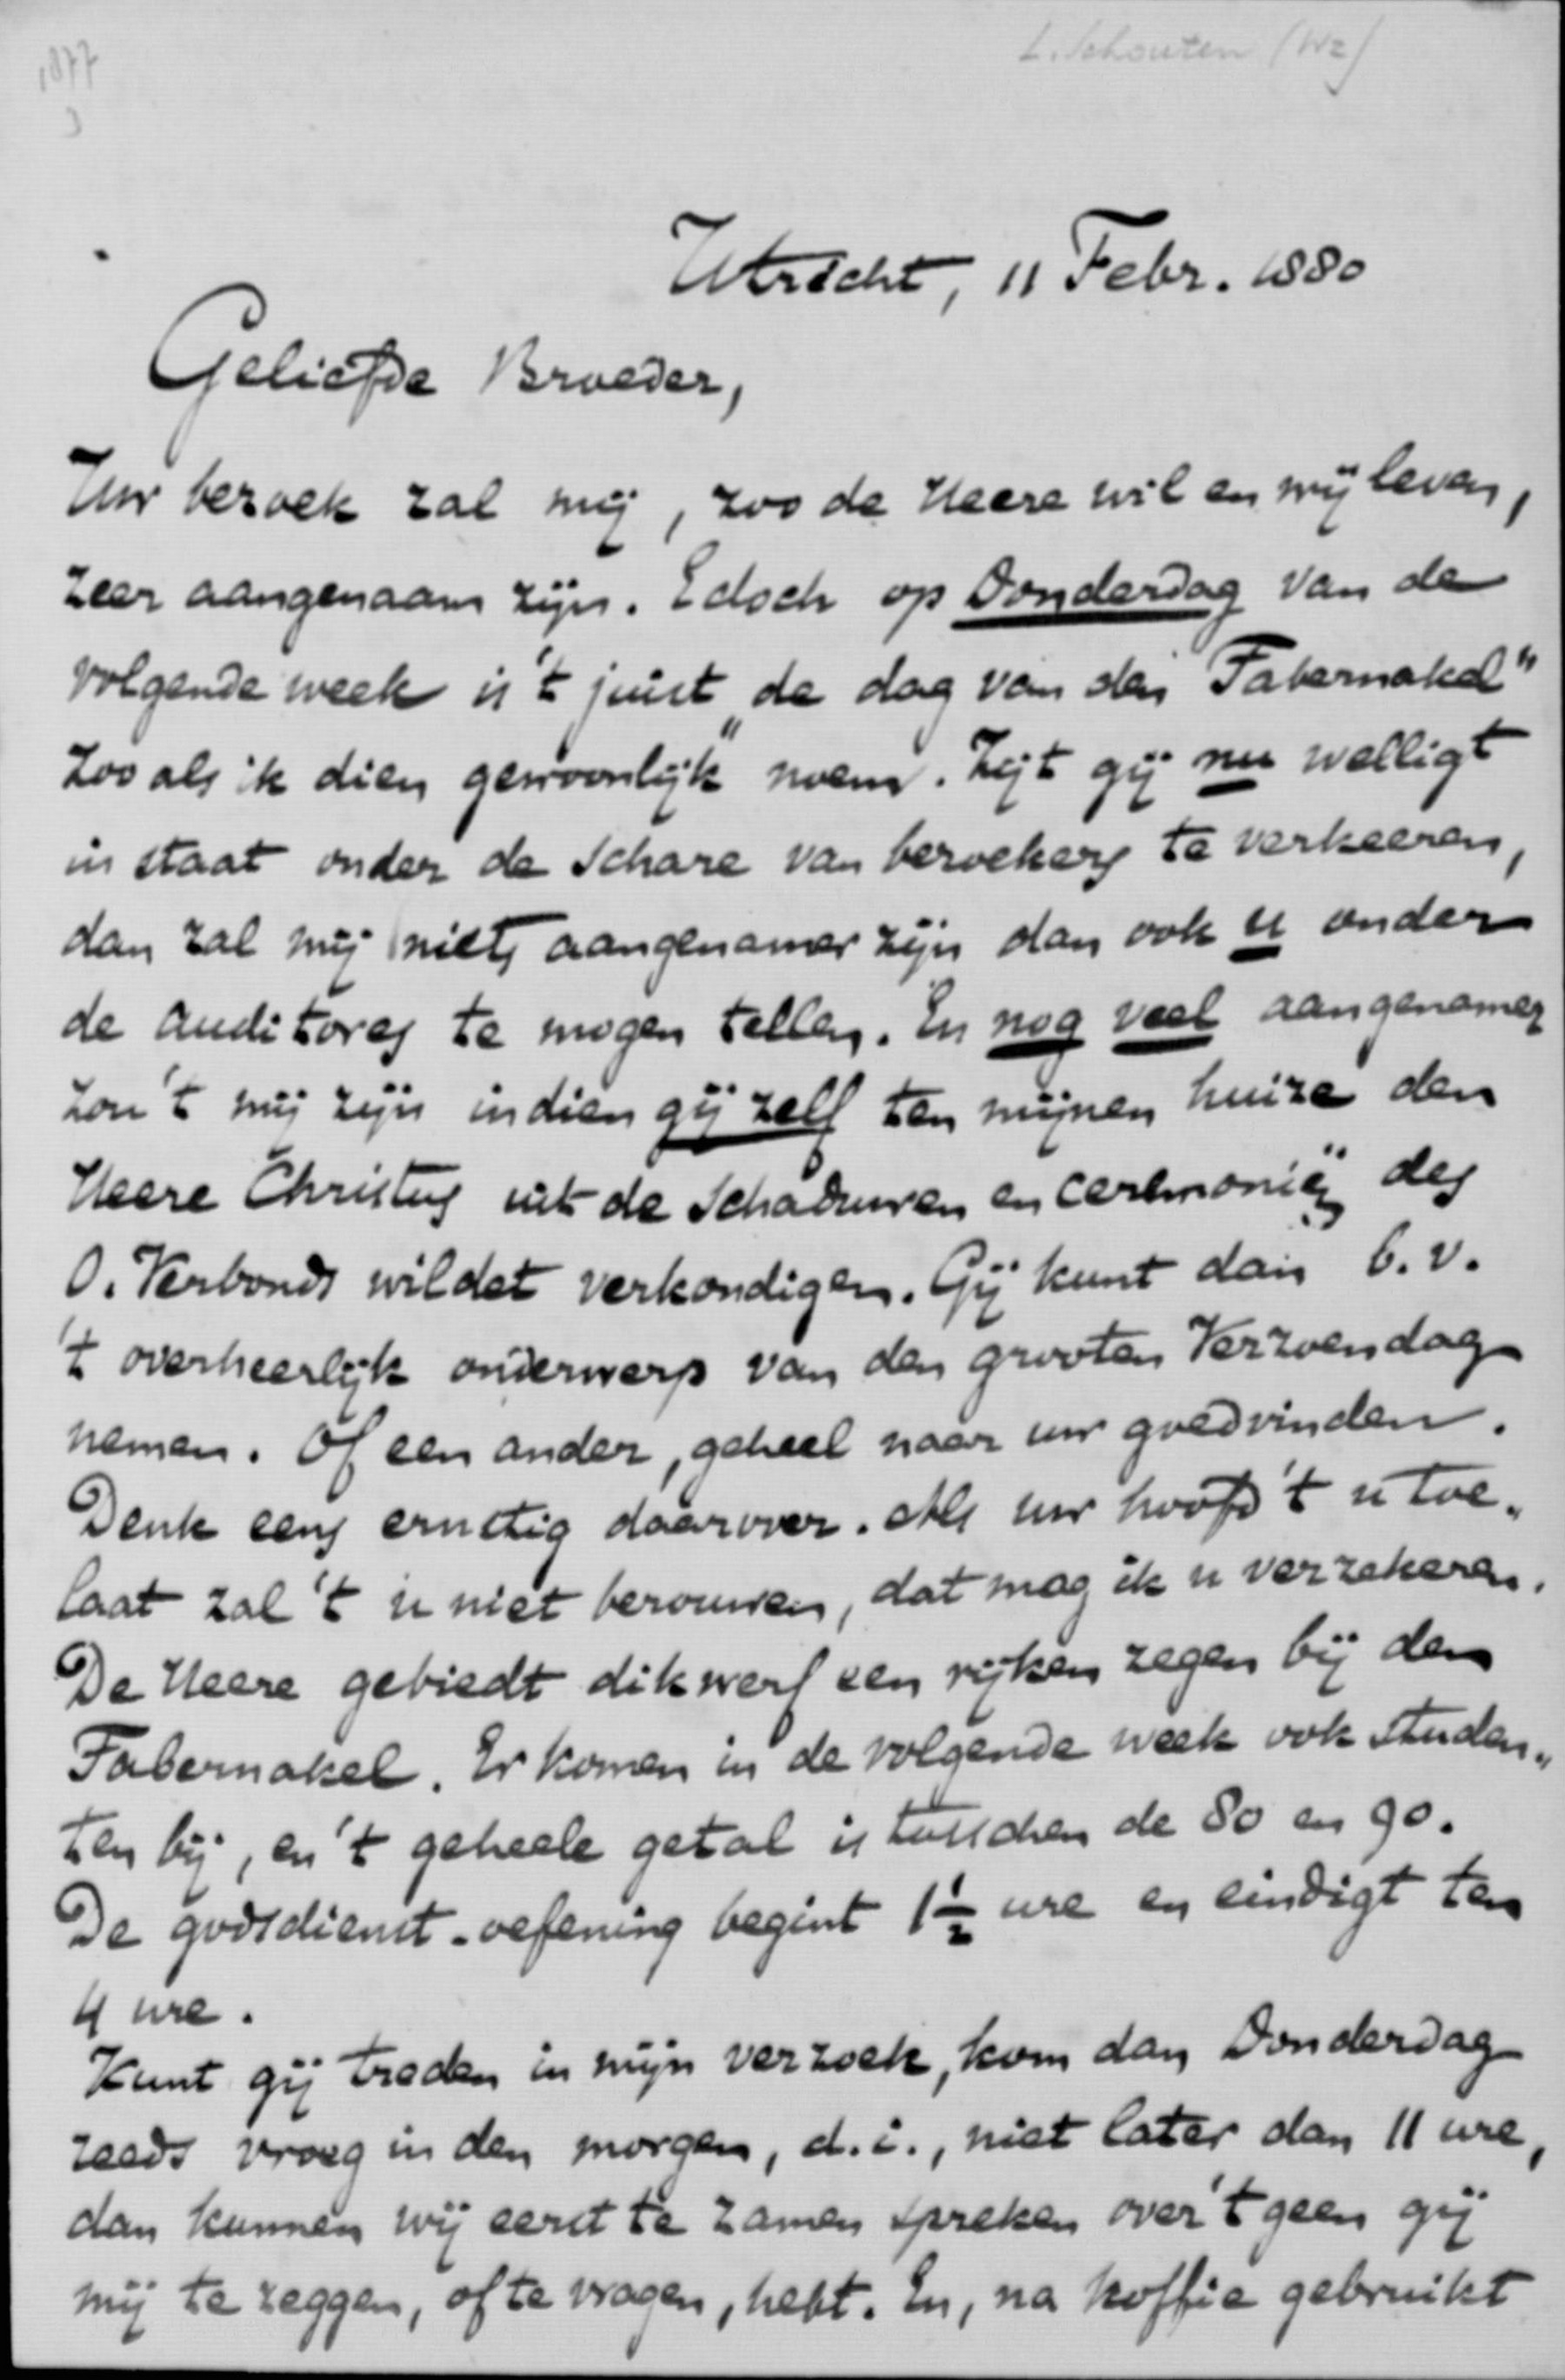 1877
3
L. Schouten (Wz)
Utrecht, 11 Febr. 1880
Geliefde Broeder,
Uw bezoek zal mij, zoo de Heere wil en wij leven,
zeer aangenaam zijn. Edoch op Donderdag van de
volgende week is 't juist „de dag van den Tabernakel"
zooals ik dien gewoonlijk noem. Zijt gij nu welligt
in staat onder de schare van bezoekers te verkeeren,
dan zal mij niets aangenamer zijn dan ook u onder
de auditores te mogen tellen. En nog veel aangenamer
zou 't mij zijn indien gij zelf ten mijnen huize den
Heere Christus uit de schaduwen en ceremoniën des
O. Verbonds wildet verkondigen. Gij kunt dan b.v.
't overheerlijk onderwerp van den grooten Verzoendag
nemen. Of een ander, geheel naar uw goedvinden.
Denk eens ernstig daarover. Als uw hoofd 't u toe„
laat zal 't u niet berouwen, dat mag ik u verzekeren.
De Heere gebiedt dikwerf een rijken zegen bij den
Tabernakel. Er komen in de volgende week ook studen„
ten bij, en 't geheele getal is tusschen de 80 en 90.
De godsdienst-oefening begint 1½ ure en eindigt ten
4 ure.
Kunt gij treden in mijn verzoek, kom dan Donderdag
reeds vroeg in den morgen, d.i., niet later dan 11 ure,
dan kunnen wij eerst te zamen spreken over 't geen gij
mij te zeggen, of te vragen, hebt. En, na koffie gebruikt